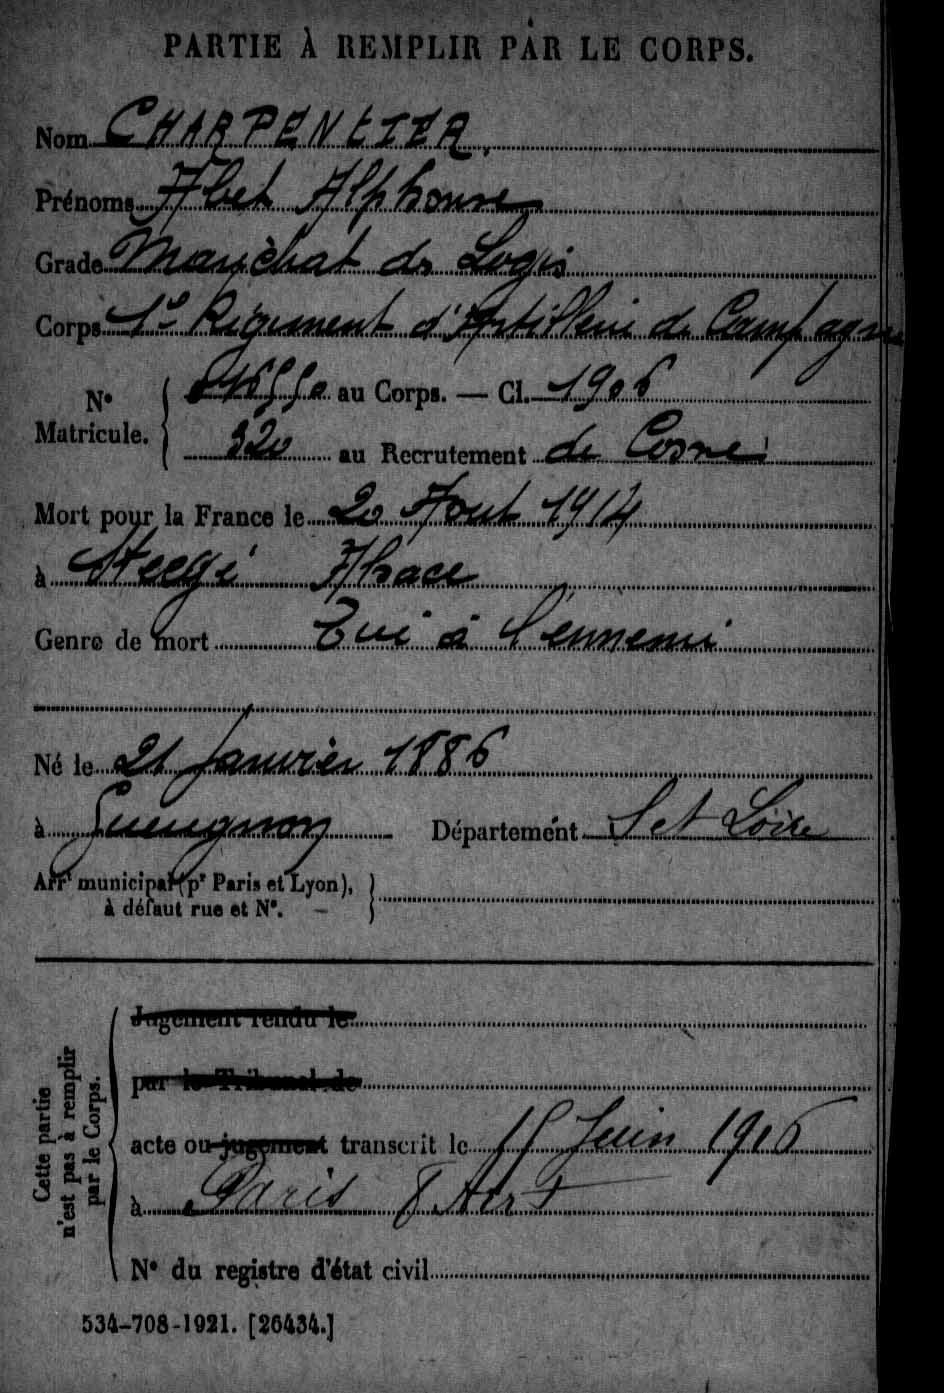 PARTIE À REMPLIR PAR LE CORPS.
Nom CHARPENTIER.
Prénoms Albert Alphonse
Grade Maréchal des Logis
Corps 1er Régiment d'Artillerie de Campagne
N° Matricule. 016550 au Corps. — Cl. 1906
320 au Recrutement de Cosne
Mort pour la France le 20 Aout 1914
à Alsace
Genre de mort Tué à l'ennemi
Né le 21 Janvier 1886
à Gueugnon Département S et Loire
Arrt municipal (pr Paris et Lyon),
à défaut rue et N°. –
Cette partie
n'est pas à remplir
par le Corps.
Jugement rendu le
par le Tribunal de
acte ou jugement transcrit le 15 Juin 1916
à Paris 8 Arrt
N° du registre d'état civil
534-708-1921. [26434.]